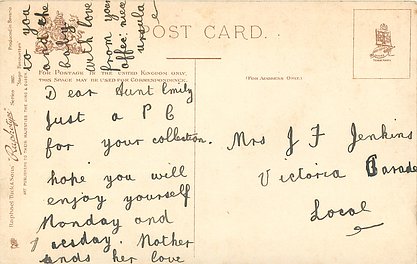 POST CARD.
FOR POSTAGE IN THE UNITED KINGDOM ONLY,
THIS SPACE MAY BE USED FOR CORRESPONDENCE.
(FOR ADDRESS ONLY.)
Dear Aunt Emily
Just a P C
for your collection.
hope you will
enjoy yourself
Monday and
Tuesday. Mother
sends her love
to you
and the
baby
with love
from your
affec: niece
Ursula
Mrs J F Jenkins
Victoria Parade
Local
Raphael Tuck & Sons'
"Rapholette"
Series
ART PUBLISHERS TO THEIR MAJESTIES THE KING & QUEEN.